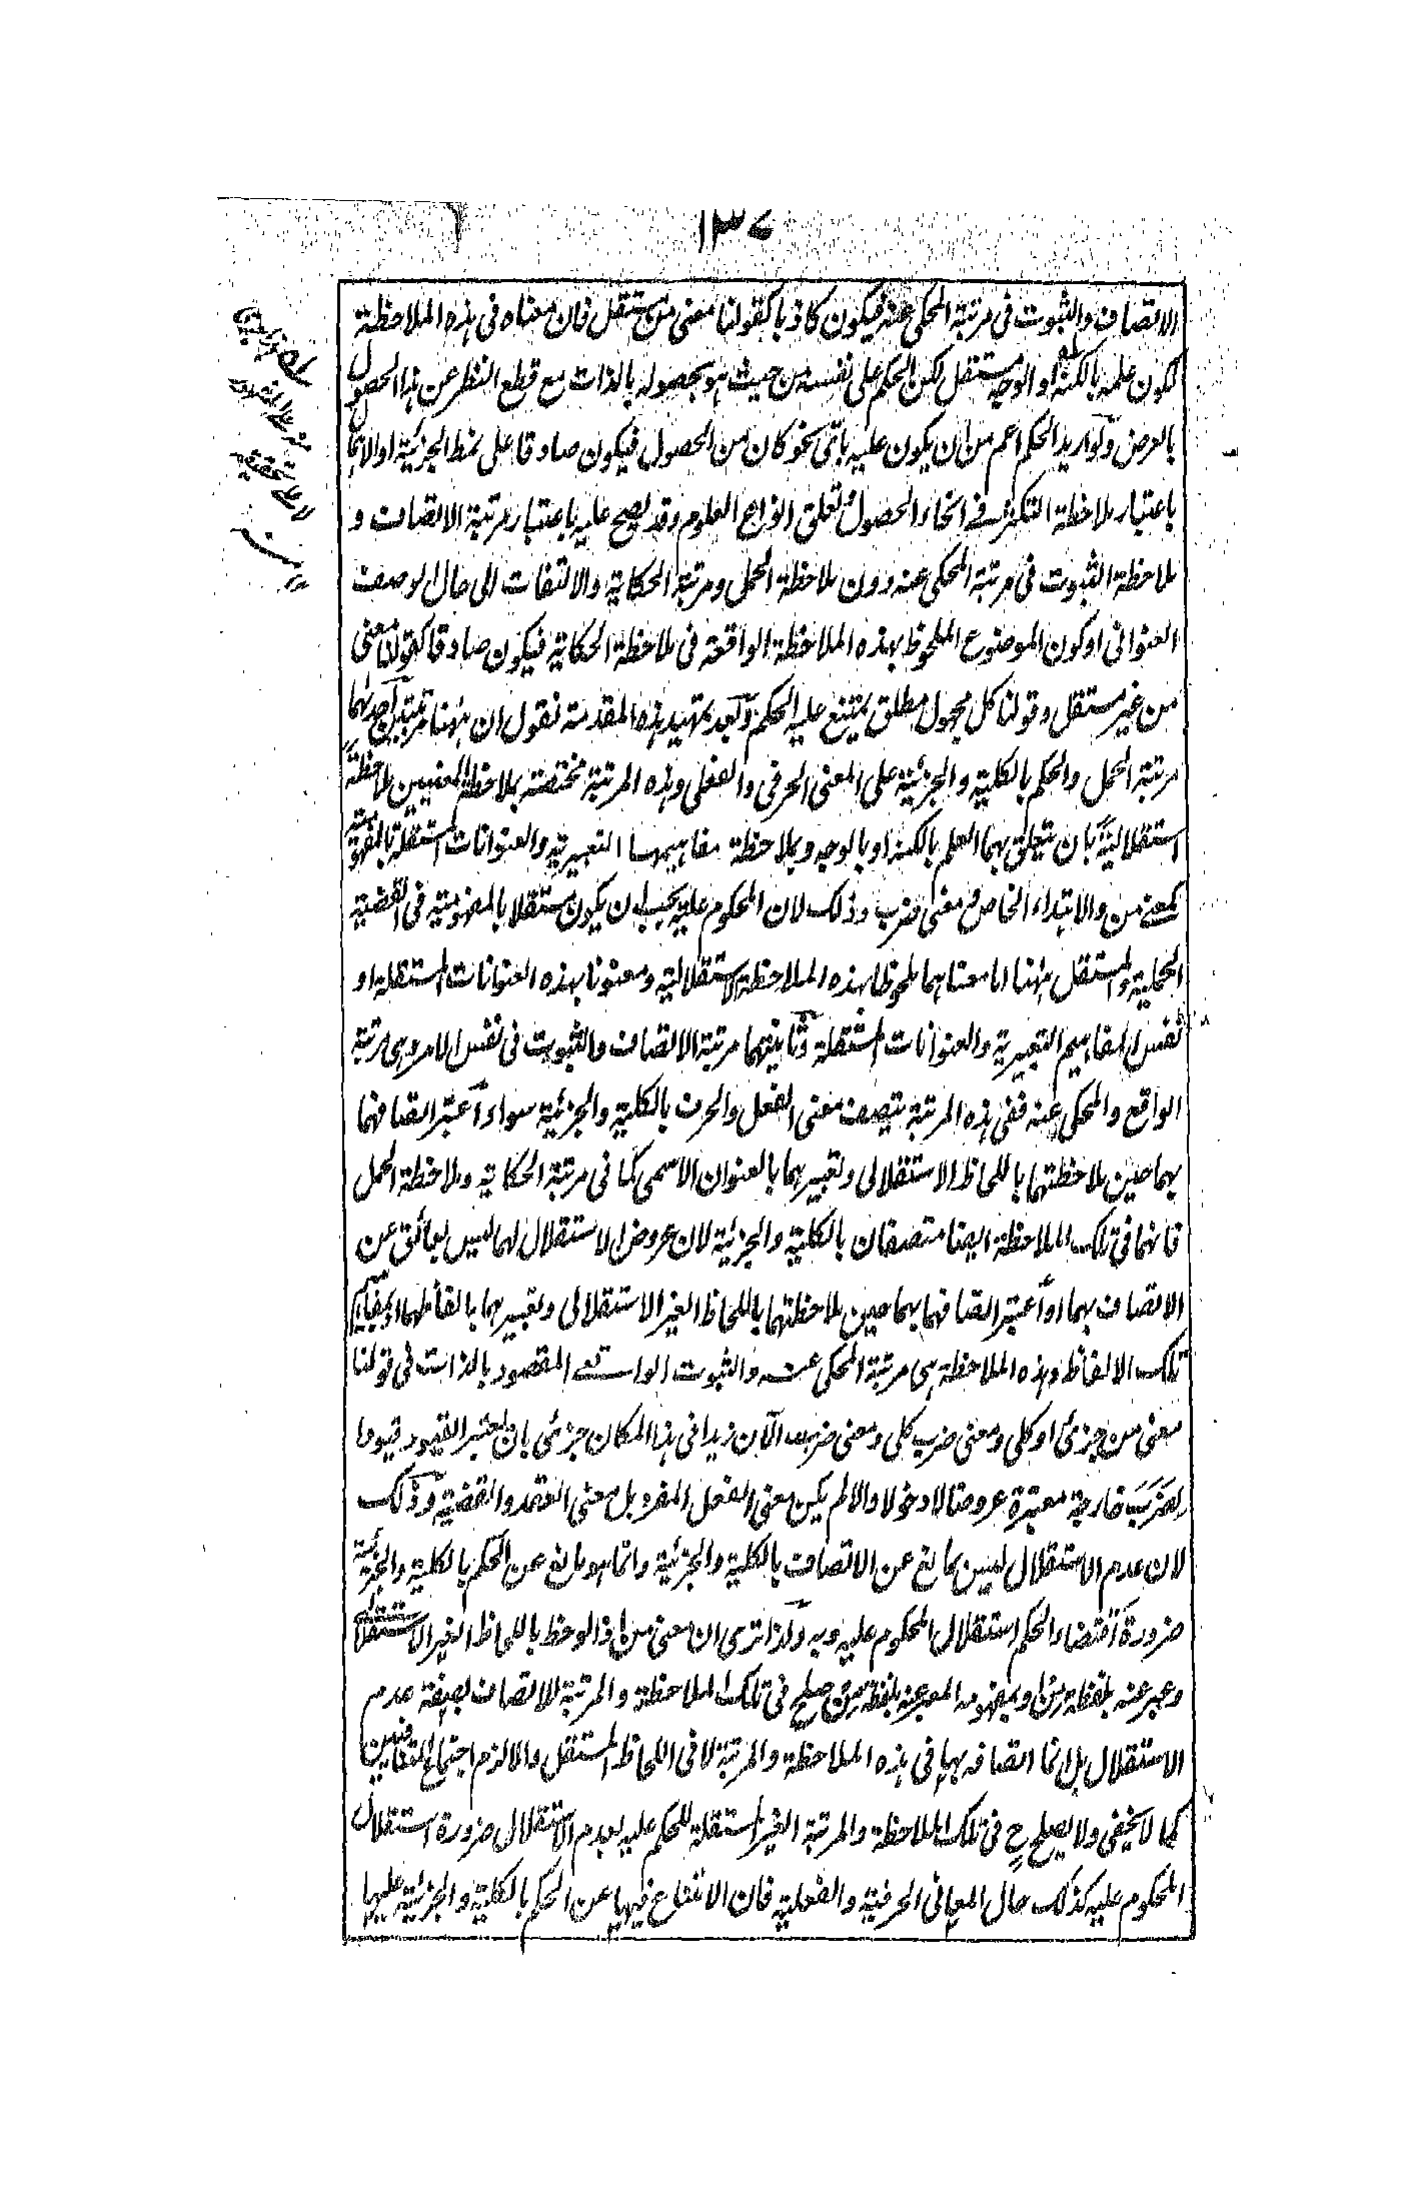 ١٣٧
الاتصاف والثبوت فى مرتبة المحكى عنه فيكون كاذبا كقولنا معنى من مستقل فان معناه فى هذه الملاحظة
لكون علمه بالكنه او الوجه مستقل لكن الحكم على نفسه من حيث هو بحصوله بالذات مع قطع النظر عن هذا الحصول
بالعرض ولو اريد الحكم اعم من ان يكون عليه باى نحو كان من الحصول فيكون صادقا على نمط الجزئية او الاهمال
باعتبار ملاحظة التكثر فى انحاء الحصول وتعلق انواع العلوم وقد يصح عليه باعتبار مرتبة الاتصاف و
ملاحظة الثبوت فى مرتبة المحكى عنه دون ملاحظة الحمل ومرتبة الحكاية والالتفات الى حال الوصف
العنوانى او كون الموضوع الملحوظ بهذه الملاحظة الواقعة فى ملاحظة الحكاية فيكون صادقا كقولنا معنى
من غير مستقل وقولنا كل مجهول مطلق يمتنع عليه الحكم وبعد تمهيد هذه المقدمة نقول ان ههنا مرتبتين احدهما
مرتبة الحمل والحكم بالكلية والجزئية على المعنى الحرفى والفعلى وهذه المرتبة مختصة بملاحظة المعنيين ملاحظة
استقلالية بان يتعلق بهما العلم بالكنه او بالوجه وبملاحظة مفاهيمها التعبيرية والعنوانات المستقلة بالمفهومية
كمعنى من والابتداء الخاص ومعنى ضرب وذلك لان المحكوم عليه يجب ان يكون مستقلا بالمفهومية فى القضية
الحملية والمستقل ههنا اما معناهما ملحوظا بهذه الملاحظة الاستقلالية ومعنونا بهذه العنوانات المستقلة او
نفس المفاهيم التعبيرية والعنوانات المستقلة وثانيتهما مرتبة الاتصاف والثبوت فى نفس الامر وهى مرتبة
الواقع والمحكى عنه ففى هذه المرتبة يتصف معنى الفعل والحرف بالكلية والجزئية سواء اعتبر اتصافهما
بهما حين ملاحظتهما باللحاظ الاستقلالى وتعبيرهما بالعنوان الاسمى كما فى مرتبة الحكاية وملاحظة الحمل
فانهما فى تلك الملاحظة ايضا متصفان بالكلية والجزئية لان عروض الاستقلال لهما ليس بعائق عن
الاتصاف بهما او اعتبر اتصافهما بهما حين ملاحظتهما باللحاظ الغير الاستقلالى وتعبيرهما بالفاظهما او بمفاهيم
تلك الالفاظ وهذه الملاحظة هى مرتبة المحكى عنه والثبوت الواقعى المقصود بالذات فى قولنا
معنى من جزئى او كلى ومعنى ضرب كلى ومعنى ضرب الآن زيدا فى هذا المكان جزئى بان يعتبر القيود قيودا
لضرب خارجة معتبرة عروضا لا دخولا والا لم يكن معنى الفعل المفرد بل معنى العقد والقضية وذلك
لان عدم الاستقلال ليس بمانع عن الاتصاف بالكلية والجزئية وانما هو مانع عن الحكم بالكلية والجزئية
ضرورة اقتضاء الحكم استقلال المحكوم عليه وبه ولذا ترى ان معنى من اذا لوحظ باللحاظ الغير الاستقلالى
وعبر عنه بلفظة من او بمفهومه المعبر عنه بلفظة من صلح فى تلك الملاحظة والمرتبة للاتصاف بصفة عدم
الاستقلال بل انما اتصافه بها فى هذه الملاحظة والمرتبة لا فى اللحاظ المستقل والا لزم اجتماع المتنافيين
كما لا يخفى ولا يصلح ح فى تلك الملاحظة والمرتبة الغير المستقلة للحكم عليه بعدم الاستقلال ضرورة استقلال
المحكوم عليه كذلك حال المعانى الحرفية والفعلية فان الامتناع فيها عن الحكم بالكلية والجزئية عليها